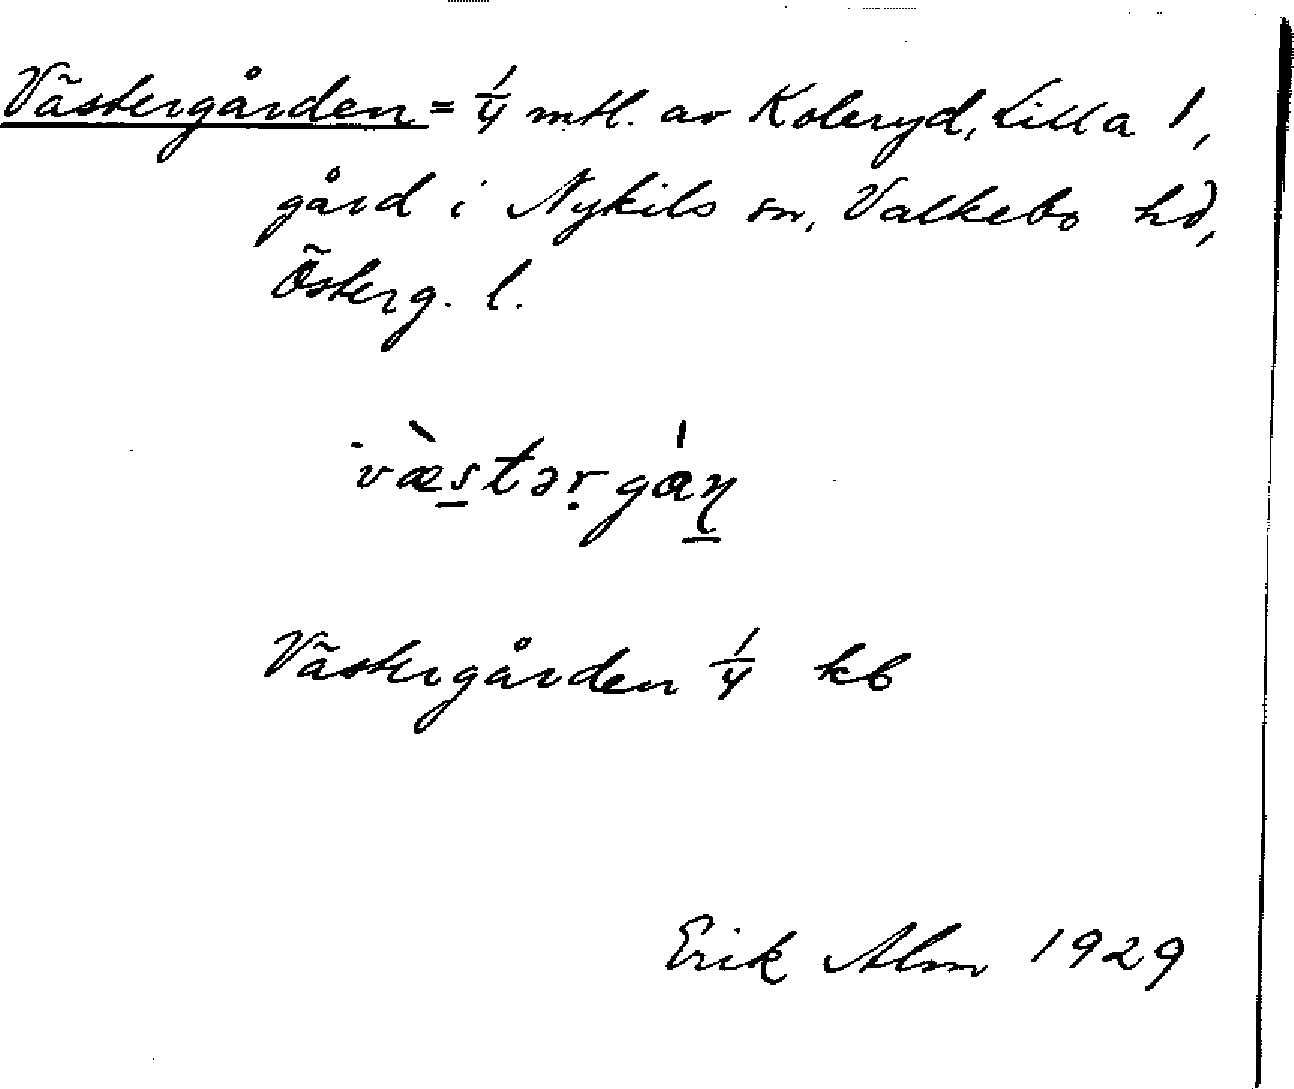 Västergården = 1/4 mtl. av Koleryd, Lilla 1,
gård i Nykils sn, Valkebo hd,
Österg. l.
væ̀s̲tər̩gán̲
Västergården 1/4 kb
Erik Alm 1929